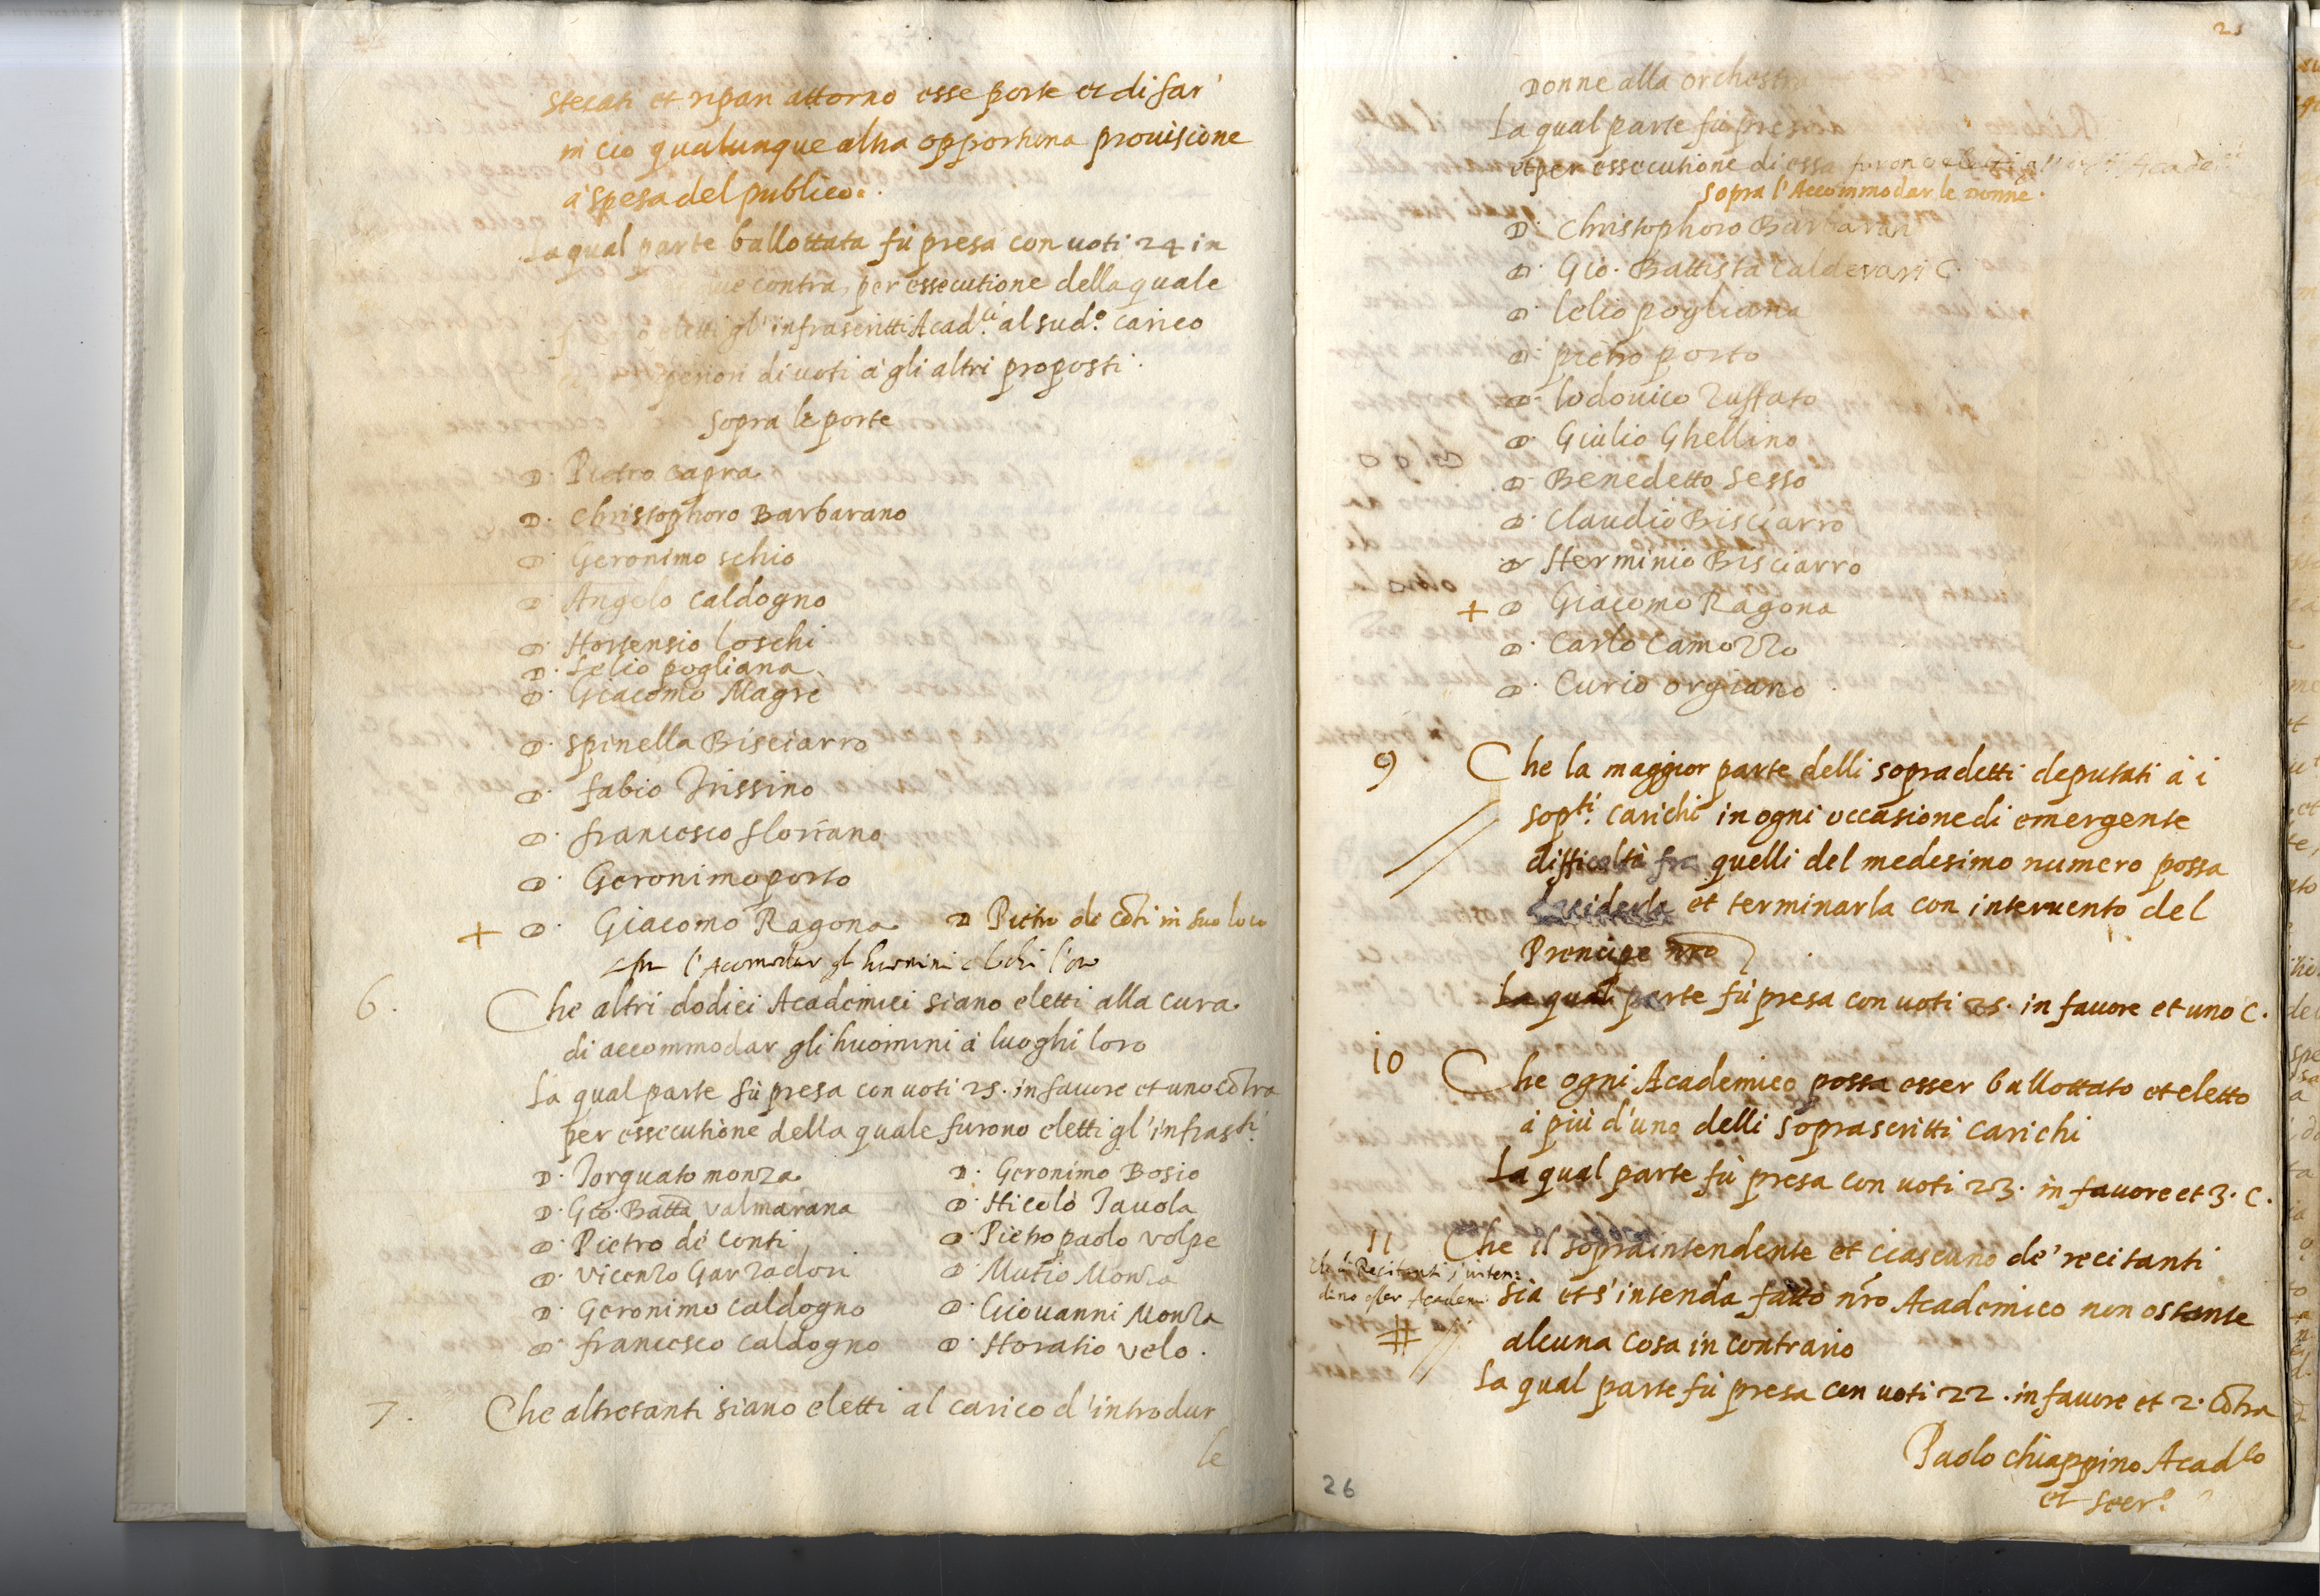 stecati et ripari attorno esse porte et di far'
in ciò qualunque altra opportuna prouisione
à spesa del publico.
La qual parte ballottata fù presa con uoti 24 in
due contra, per essecutione della quale
eletti gl'infrascritti Acad.ci al sud.o carico
superiori di uoti à gli altri proposti.
sopra le porte
D. Pietro Capra
D. Christophoro Barbarano
D. Geronimo Schio
D. Angelo Caldogno
D. Hortensio Loschi
D. Lelio pogliana
D. Giacomo Magrè
D. Spinella Bisciarro
D. Fabio Trissino
D. Francesco Floriano
D. Geronimo porto
+ D. Giacomo Ragona D Pietro de Cōti in suo loco
l'Acomodar gl huomini
6. Che altri dodici Academici siano eletti alla cura
di accommodar gli huomini à luoghi loro
La qual parte fù presa con uoti 25. in fauore et uno cōtra
per essecutione della quale furono eletti gl'infrasti.
D. Torquato monza
D. Geronimo Bosio
D. Gio. Batta Valmarana
D. Nicolò Tauola
D. Pietro de' Conti
D. Pietro paolo Volpe
D. Vicenzo Garzadori
D. Mutio Monza
D. Geronimo Caldogno
D. Giouanni Monza
D. Francesco Caldogno
D. Horatio Velo.
7. Che altretanti siano eletti al carico d'introdur
le
25
Donne alla orchestra
La qual parte fù presa
et per essecutione di essa furono eletti
sopra l'Accommodar le Donne.
D. Christophoro Barbaran
D. Gio. Battista Calderari C.
D. Lelio pogliana
D. pietro porto
D. Lodouico Zuffato
D. Giulio Ghellino
D. Benedetto Sesso
D. Claudio Bisciarro
D. Herminio Bisciarro
+ D Giacomo Ragona
D. Carlo Camozzo
D. Curio Orgiano.
9 Che la maggior parte delli sopradetti deputati à i
sopti. carichi in ogni occasione di emergente
difficoltà fra quelli del medesimo numero possa
deciderla et terminarla con interuento del
Prencipe nro
La qual parte fù presa con uoti 25. in fauore et uno C.
10 Che ogni Academico possa esser ballottato et eletto
à più d'uno delli soprascritti carichi
La qual parte fù presa con uoti 23. in fauore et 3. C.
11 Che il sopraintendente et ciascuno de' recitanti
Recitanti s'inten:
dino esser Academ
sia et s'intenda fatto nr̄o Academico non ostante
alcuna cosa in contrario
La qual parte fù presa con uoti 22. in fauore et 2. cōtra
Paolo chiappino Acad.co
et secr.o
26